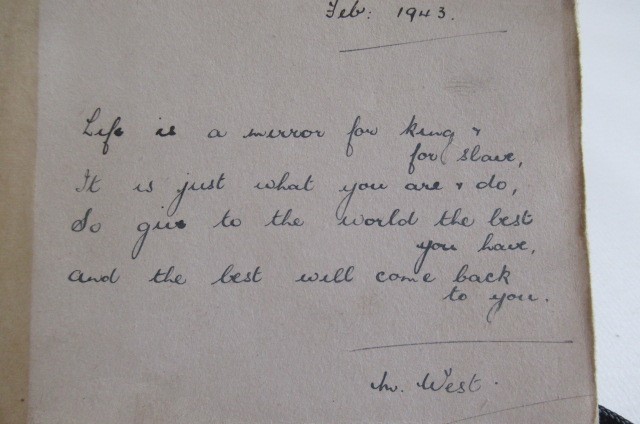 Feb: 1943.
Life is a mirror for king &
for slave,
It is just what you are & do,
So give to the world the best
you have,
and the best will come back
to you.
M. West.